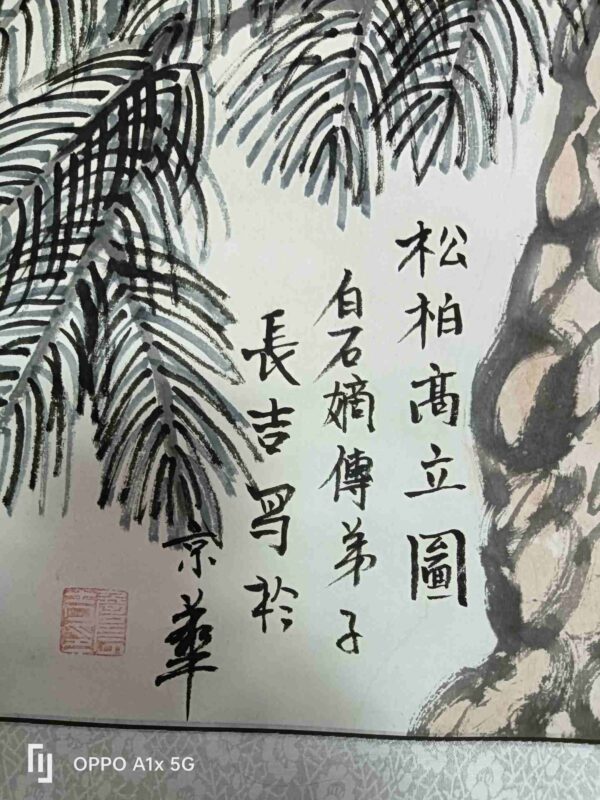 松柏高立圖
白石嫡傳弟子
長吉写於
京華
OPPO A1x 5G